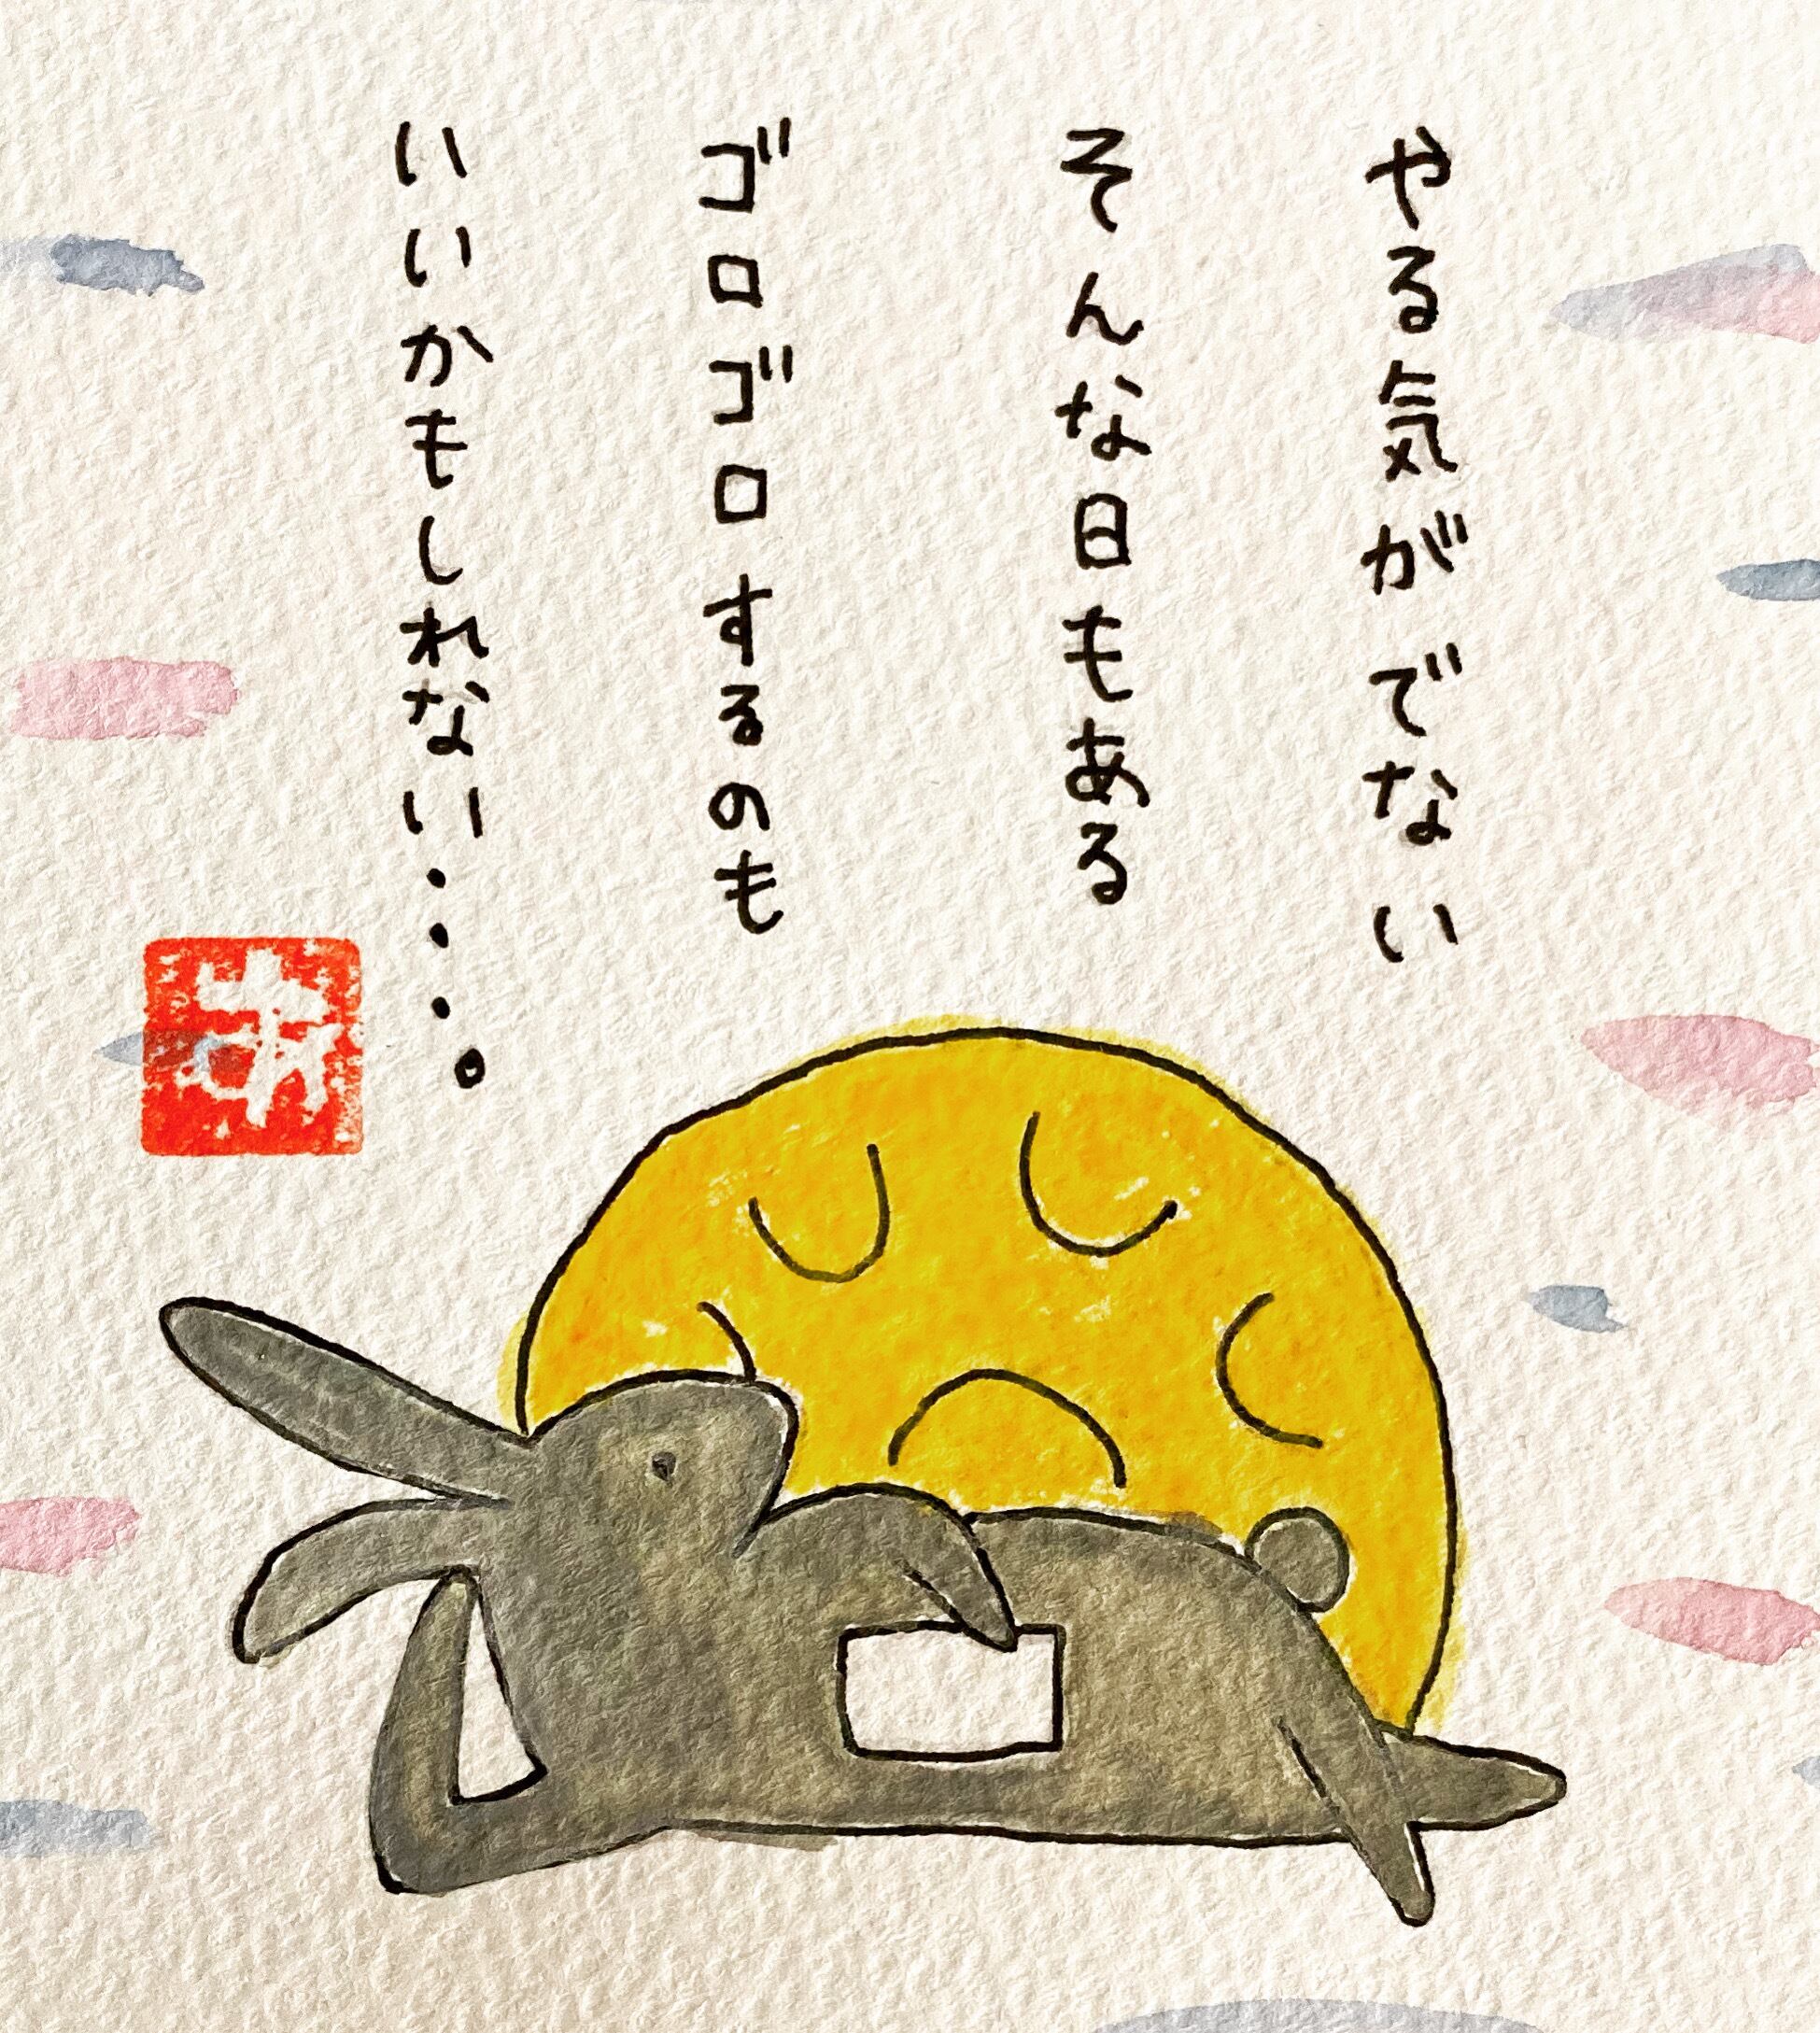 やる気がでない
そんな日もある
ゴロゴロするのも
いいかもしれない・・・。
あ